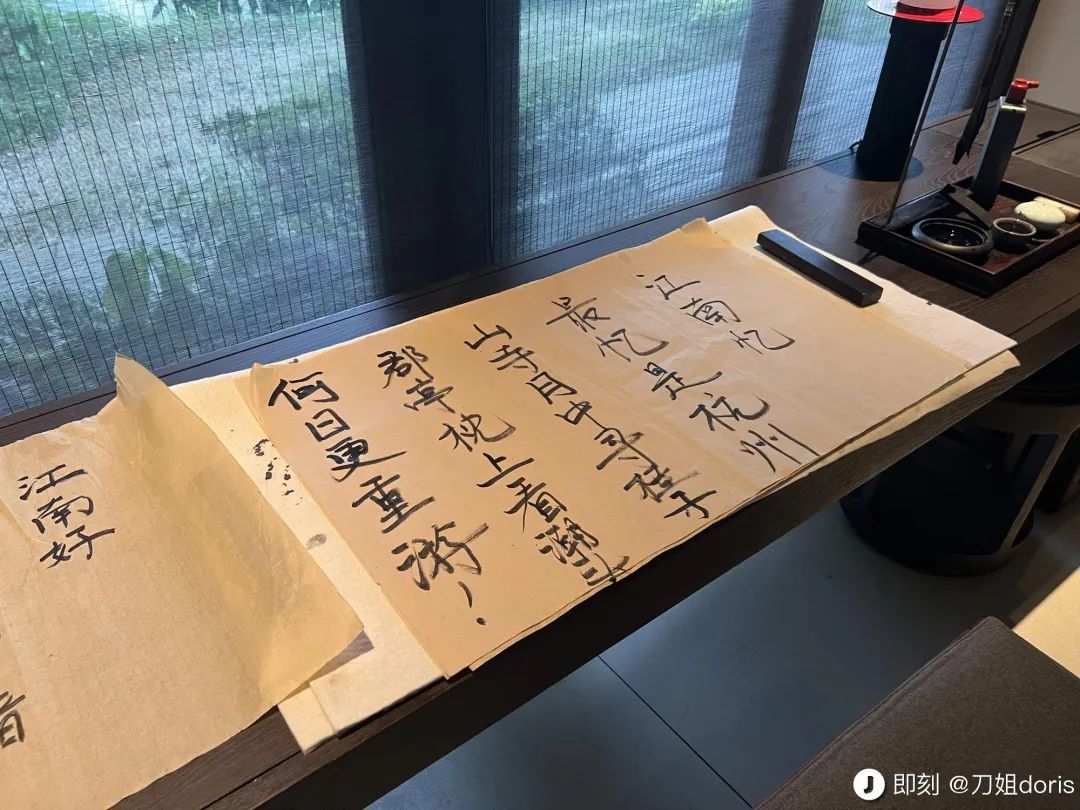 江南忆
最忆是杭州
山寺月中寻桂子
郡亭枕上看潮头
何日更重游!
江南好
即刻 @刀姐doris